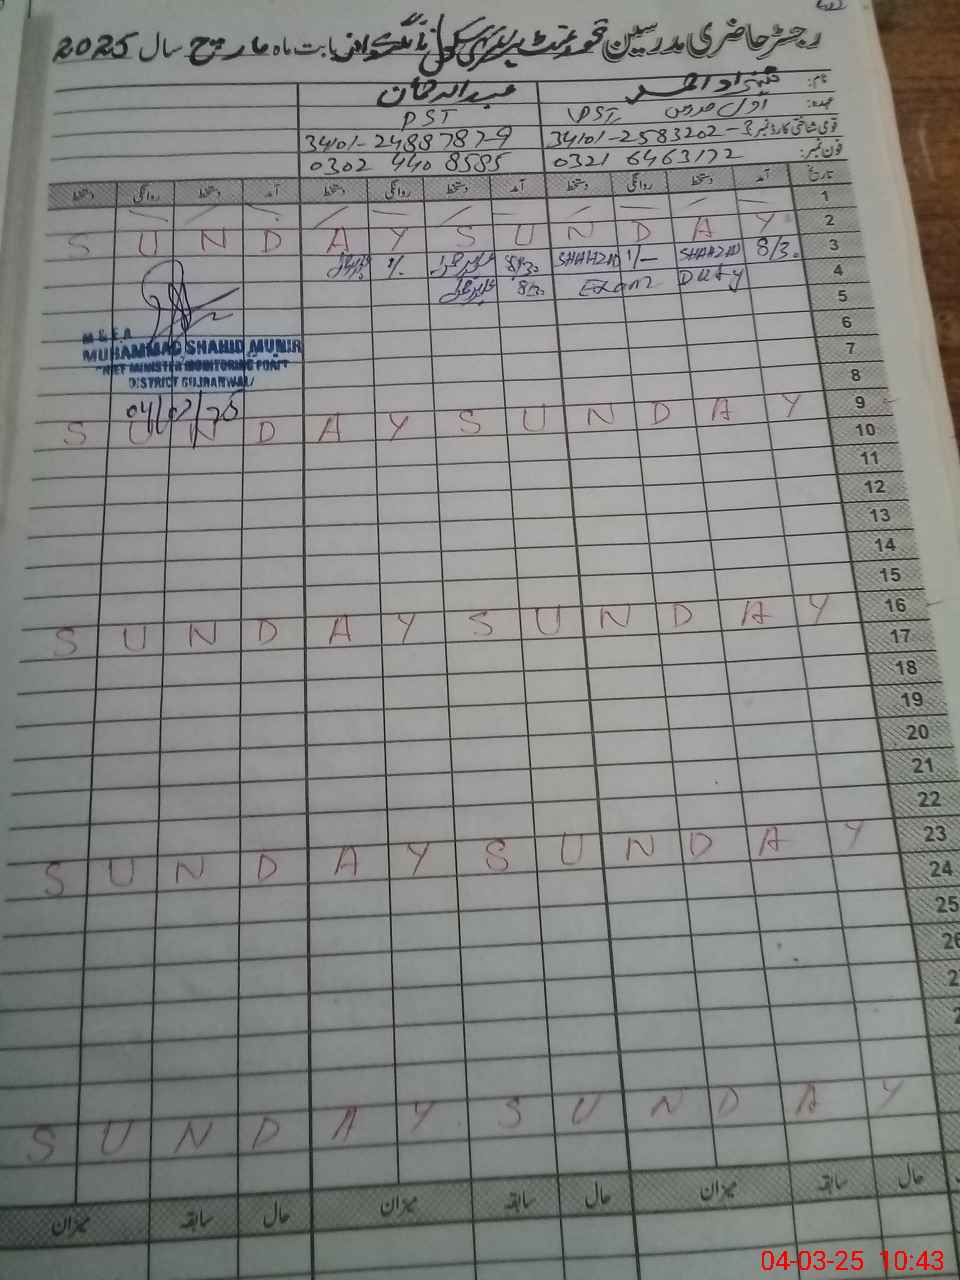 رجسٹر حاضری مدرسین گورنمنٹ پرائمری سکول بابت ماہ مارچ سال 2025
نام: شہزاد احمد عبدالرحمان
عہدہ: اول مدرس PST PST
قومی شناختی کارڈ نمبر: 34101-2583202-3 34101-2488787-9
فون نمبر: 0321 6463172 0302 440 8585
تاریخ آمد دستخط روانگی دستخط آمد دستخط روانگی دستخط آمد دستخط روانگی دستخط
1
2 S U N D A Y S U N D A Y
3 8/30 SHAHZAD 1/- SHAHZAD 8/30 1/-
4 Exam Duty 8/30
5
6
7
8
9 S U N D A Y S U N D A Y
10
11
12
13
14
15
16 S U N D A Y S U N D A Y
17
18
19
20
21
22
23 S U N D A Y S U N D A Y
24
25
26
S U N D A Y S U N D A Y
حال سابقہ میزان حال سابقہ میزان حال سابقہ میزان
M & E A
MUHAMMAD SHAHID MUNIR
CHIEF MINISTER MONITORING FORCE
DISTRICT GUJRANWALA
04-03-25 10:43